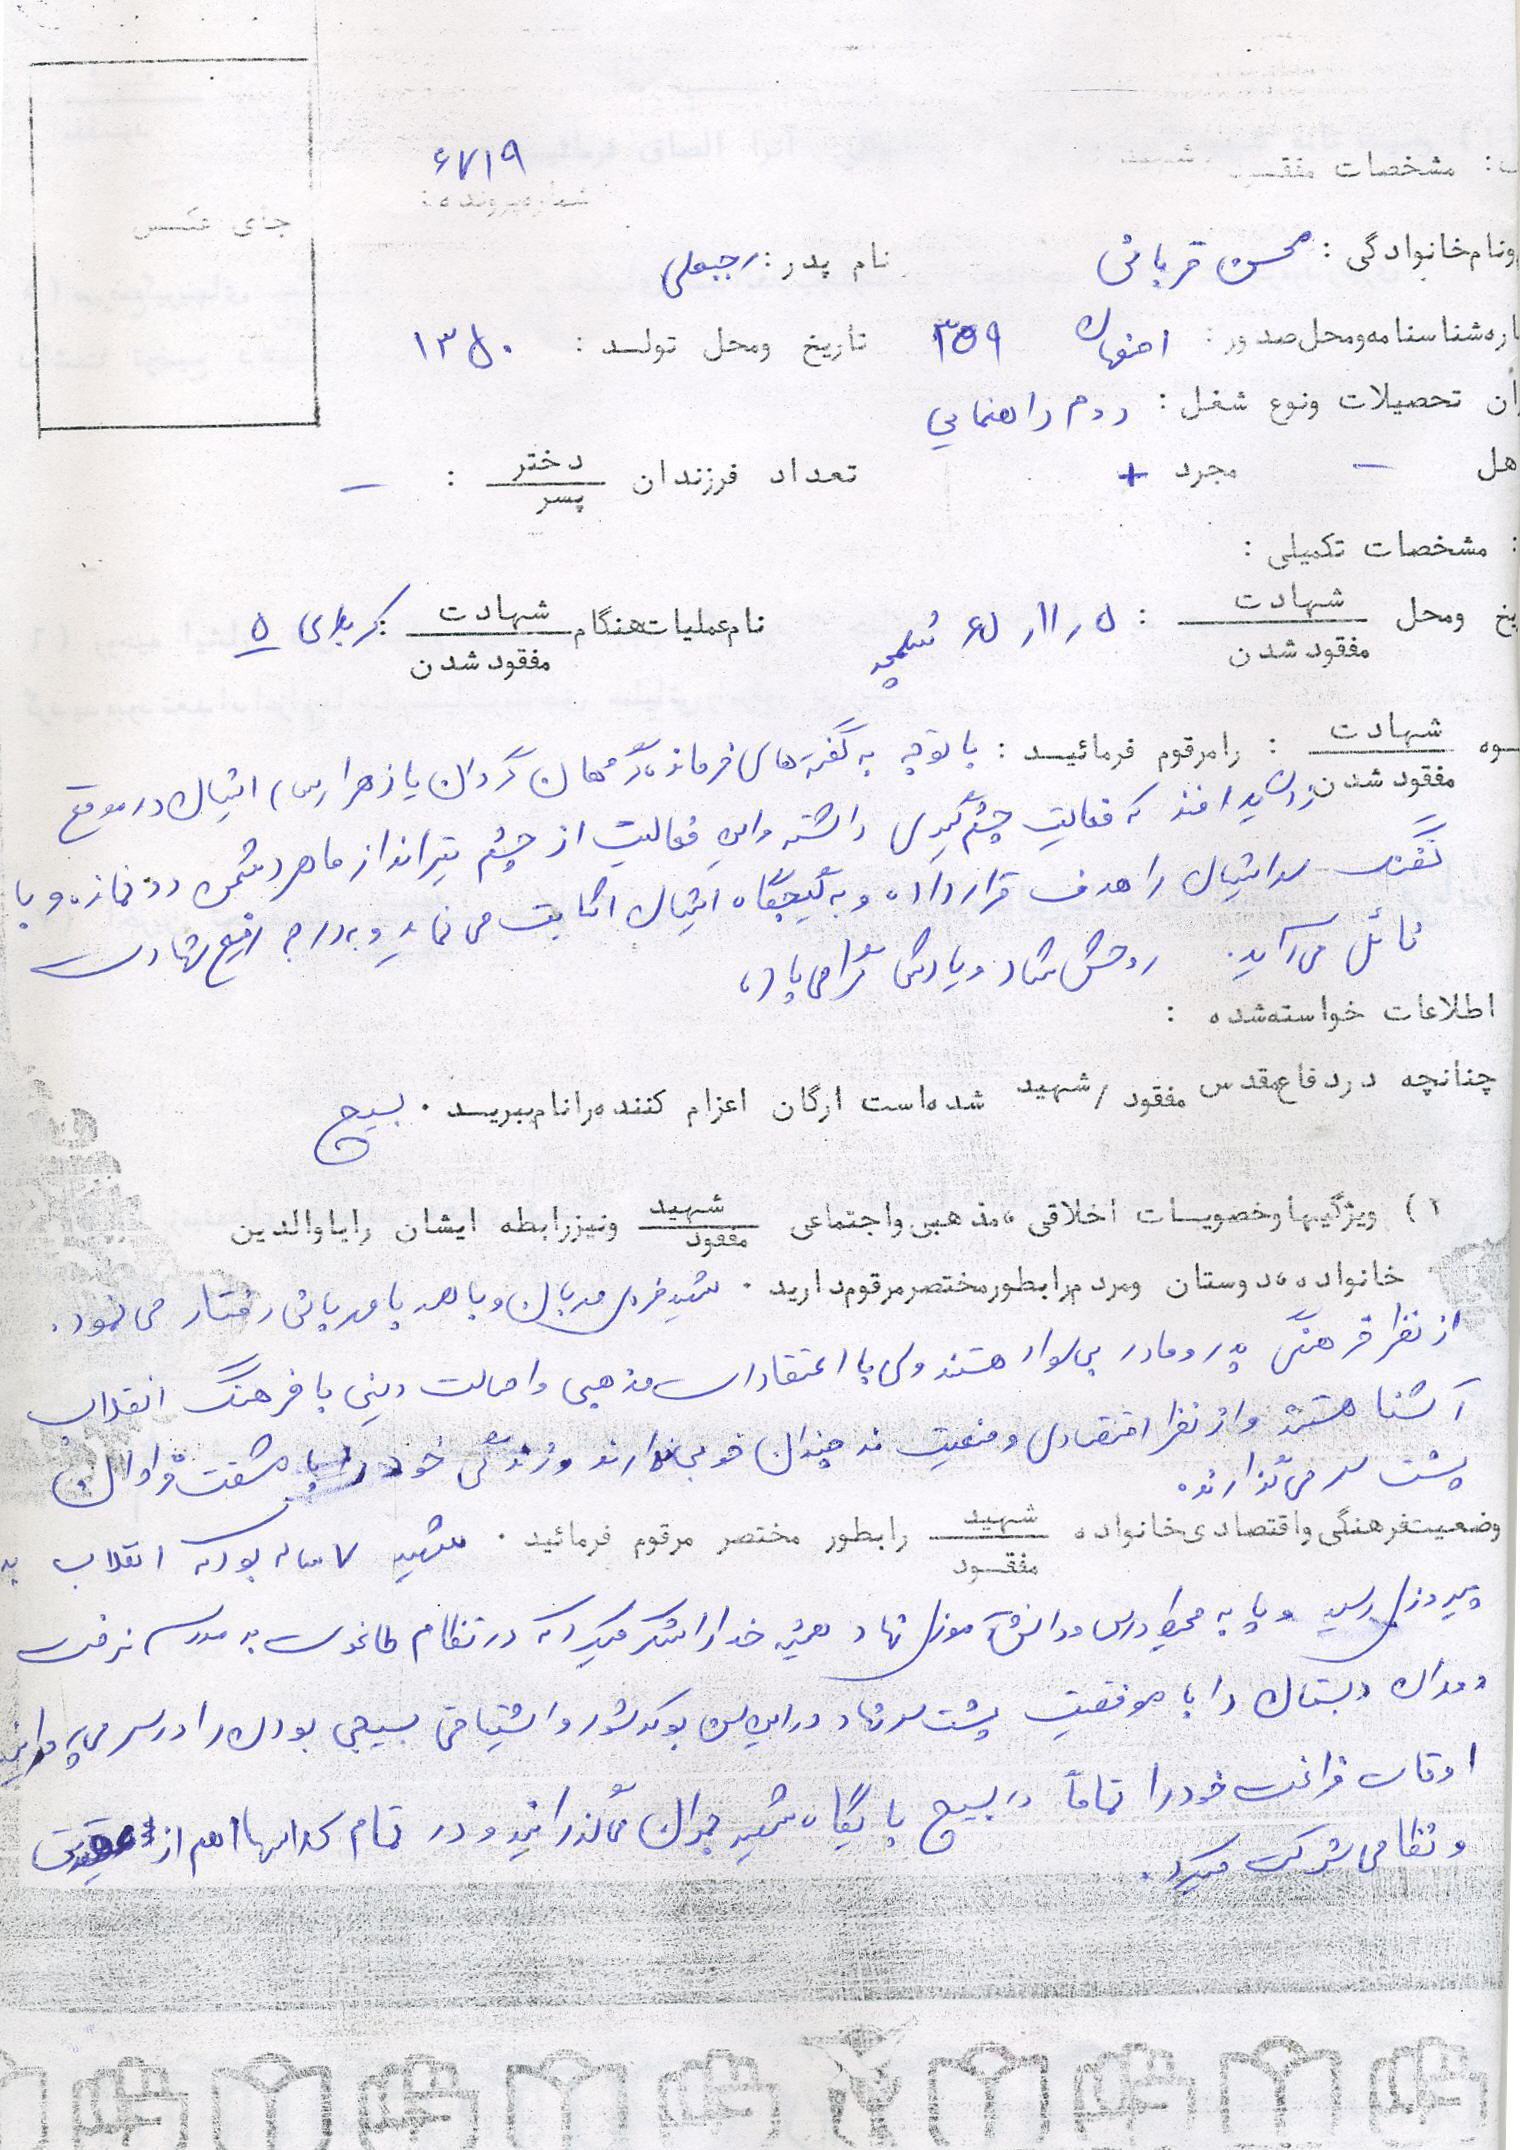 ۶۷۱۹
مشخصات
شماره پرونده :
جای عکس
ونام خانوادگی : محسن قربانی نام پدر : رجبعلی
اره شناسنامه ومحل صدور : اصفهان ۳۵۹ تاریخ ومحل تولد : ۱۳۵۰
تحصیلات ونوع شغل : دوم راهنمایی
هل – مجرد + تعداد فرزندان دختر / پسر : –
: مشخصات تکمیلی :
یخ ومحل شهادت / مفقود شدن : ۶۵٫۱۱٫۵ شلمچه نام عملیات هنگام شهادت / مفقود شدن : کربلای ۵
وه شهادت / مفقود شدن : رامرقوم فرمائید : با توجه به گفته های فرمانده گروهان گردان یا زهرا (س) ایشان در موقع
که فعالیت چشم گیری داشته و این فعالیت از چشم تیرانداز ماهر دشمن دور نمانده و با
تفنگ ایشان را هدف قرار داده و به گیجگاه ایشان اصابت می نماید و به درجه رفیع شهادت
نائل می آید. روحش شاد و یادش گرامی باد
اطلاعات خواسته شده :
چنانچه دردفاع مقدس مفقود / شهید شده است ارگان اعزام کننده رانام ببرید . بسیج
۱) ویژگیها وخصویسات اخلاقی ، مذهبی واجتماعی شهید / مفقود ونیزرابطه ایشان رایا والدین
خانواده ، دوستان ومردم رابطورمختصرمرقوم دارید . شهید فردی مهربان و با همه با مهربانی رفتار می نمود.
از نظر فرهنگی پدر و مادر بی سواد هستند ولی با اعتقادات مذهبی و اصالت دینی با فرهنگ انقلاب
آشنا هستند و از نظر اقتصادی وضعیت نه چندان خوبی دارند و زندگی خود را با مشقت فراوان
پشت سر می گذارند.
وضعیت فرهنگی واقتصادی خانواده شهید / مفقود رابطور مختصر مرقوم فرمائید . شهید ۷ ساله بود که انقلاب به
پیروزی رسید و پا به محیط درس و دانش آموزی نهاد همیشه خدا را شکر میکرد که در نظام طاغوت به مدرسه نرفت
دوران دبستان را با موفقیت پشت سر نهاد در این سن بود که شور و اشتیاق بسیجی بودن را در سر می پروراند
اوقات فراغت خود را تماماً در بسیج پایگاه شهید می گذرانید و در تمام کلاسها اعم از عقیدتی
و نظامی شرکت میکرد.